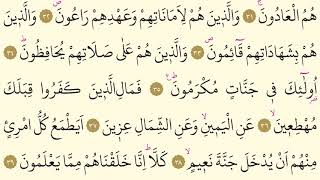 هُمُ الْعَادُونَۚ ﴿٣١﴾ وَالَّذِينَ هُمْ لِاَمَانَاتِهِمْ وَعَهْدِهِمْ رَاعُونَۙ ﴿٣٢﴾ وَالَّذِينَ
هُمْ بِشَهَادَاتِهِمْ قَٓائِمُونَۙ ﴿٣٣﴾ وَالَّذِينَ هُمْ عَلٰى صَلَاتِهِمْ يُحَافِظُونَۜ ﴿٣٤﴾
اُو۬لٰٓئِكَ فِى جَنَّاتٍ مُكْرَمُونَۜ ﴿٣٥﴾ فَمَالِ الَّذِينَ كَفَرُوا قِبَلَكَ
مُهْطِعِينَۙ ﴿٣٦﴾ عَنِ الْيَمِينِ وَعَنِ الشِّمَالِ عِزِينَ ﴿٣٧﴾ اَيَطْمَعُ كُلُّ امْرِئٍ
مِنْهُمْ اَنْ يُدْخَلَ جَنَّةَ نَعِيمٍۙ ﴿٣٨﴾ كَلَّاۜ اِنَّا خَلَقْنَاهُمْ مِمَّا يَعْلَمُونَ ﴿٣٩﴾